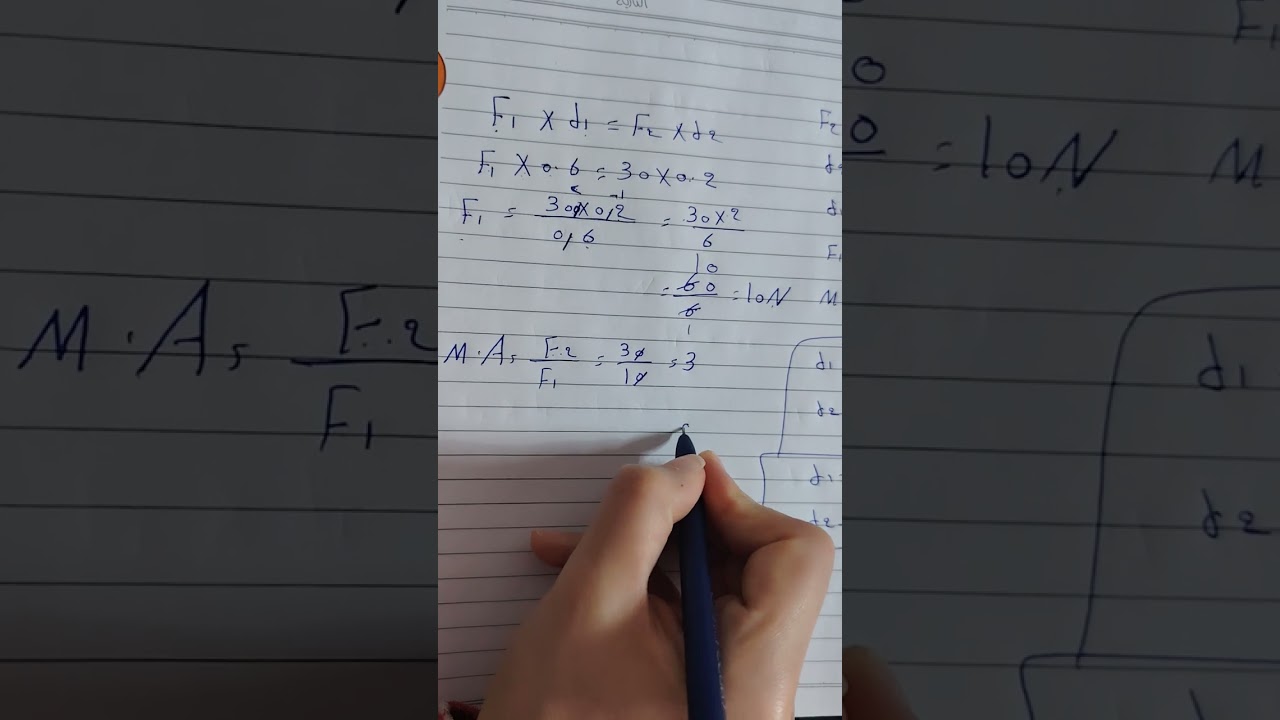 التاريخ
F₁ × d₁ = F₂ × d₂
F₁ × 0.6 = 30 × 0.2
F₁ = 30 × 0,2 / 0,6 = 30 × 2 / 6
10
= 60 / 6 = 10N
1
M.A = F₂ / F₁ = 30 / 10 = 3
F₂
d
d
F₁
M
d₁
d₂
d₁ =
d₂